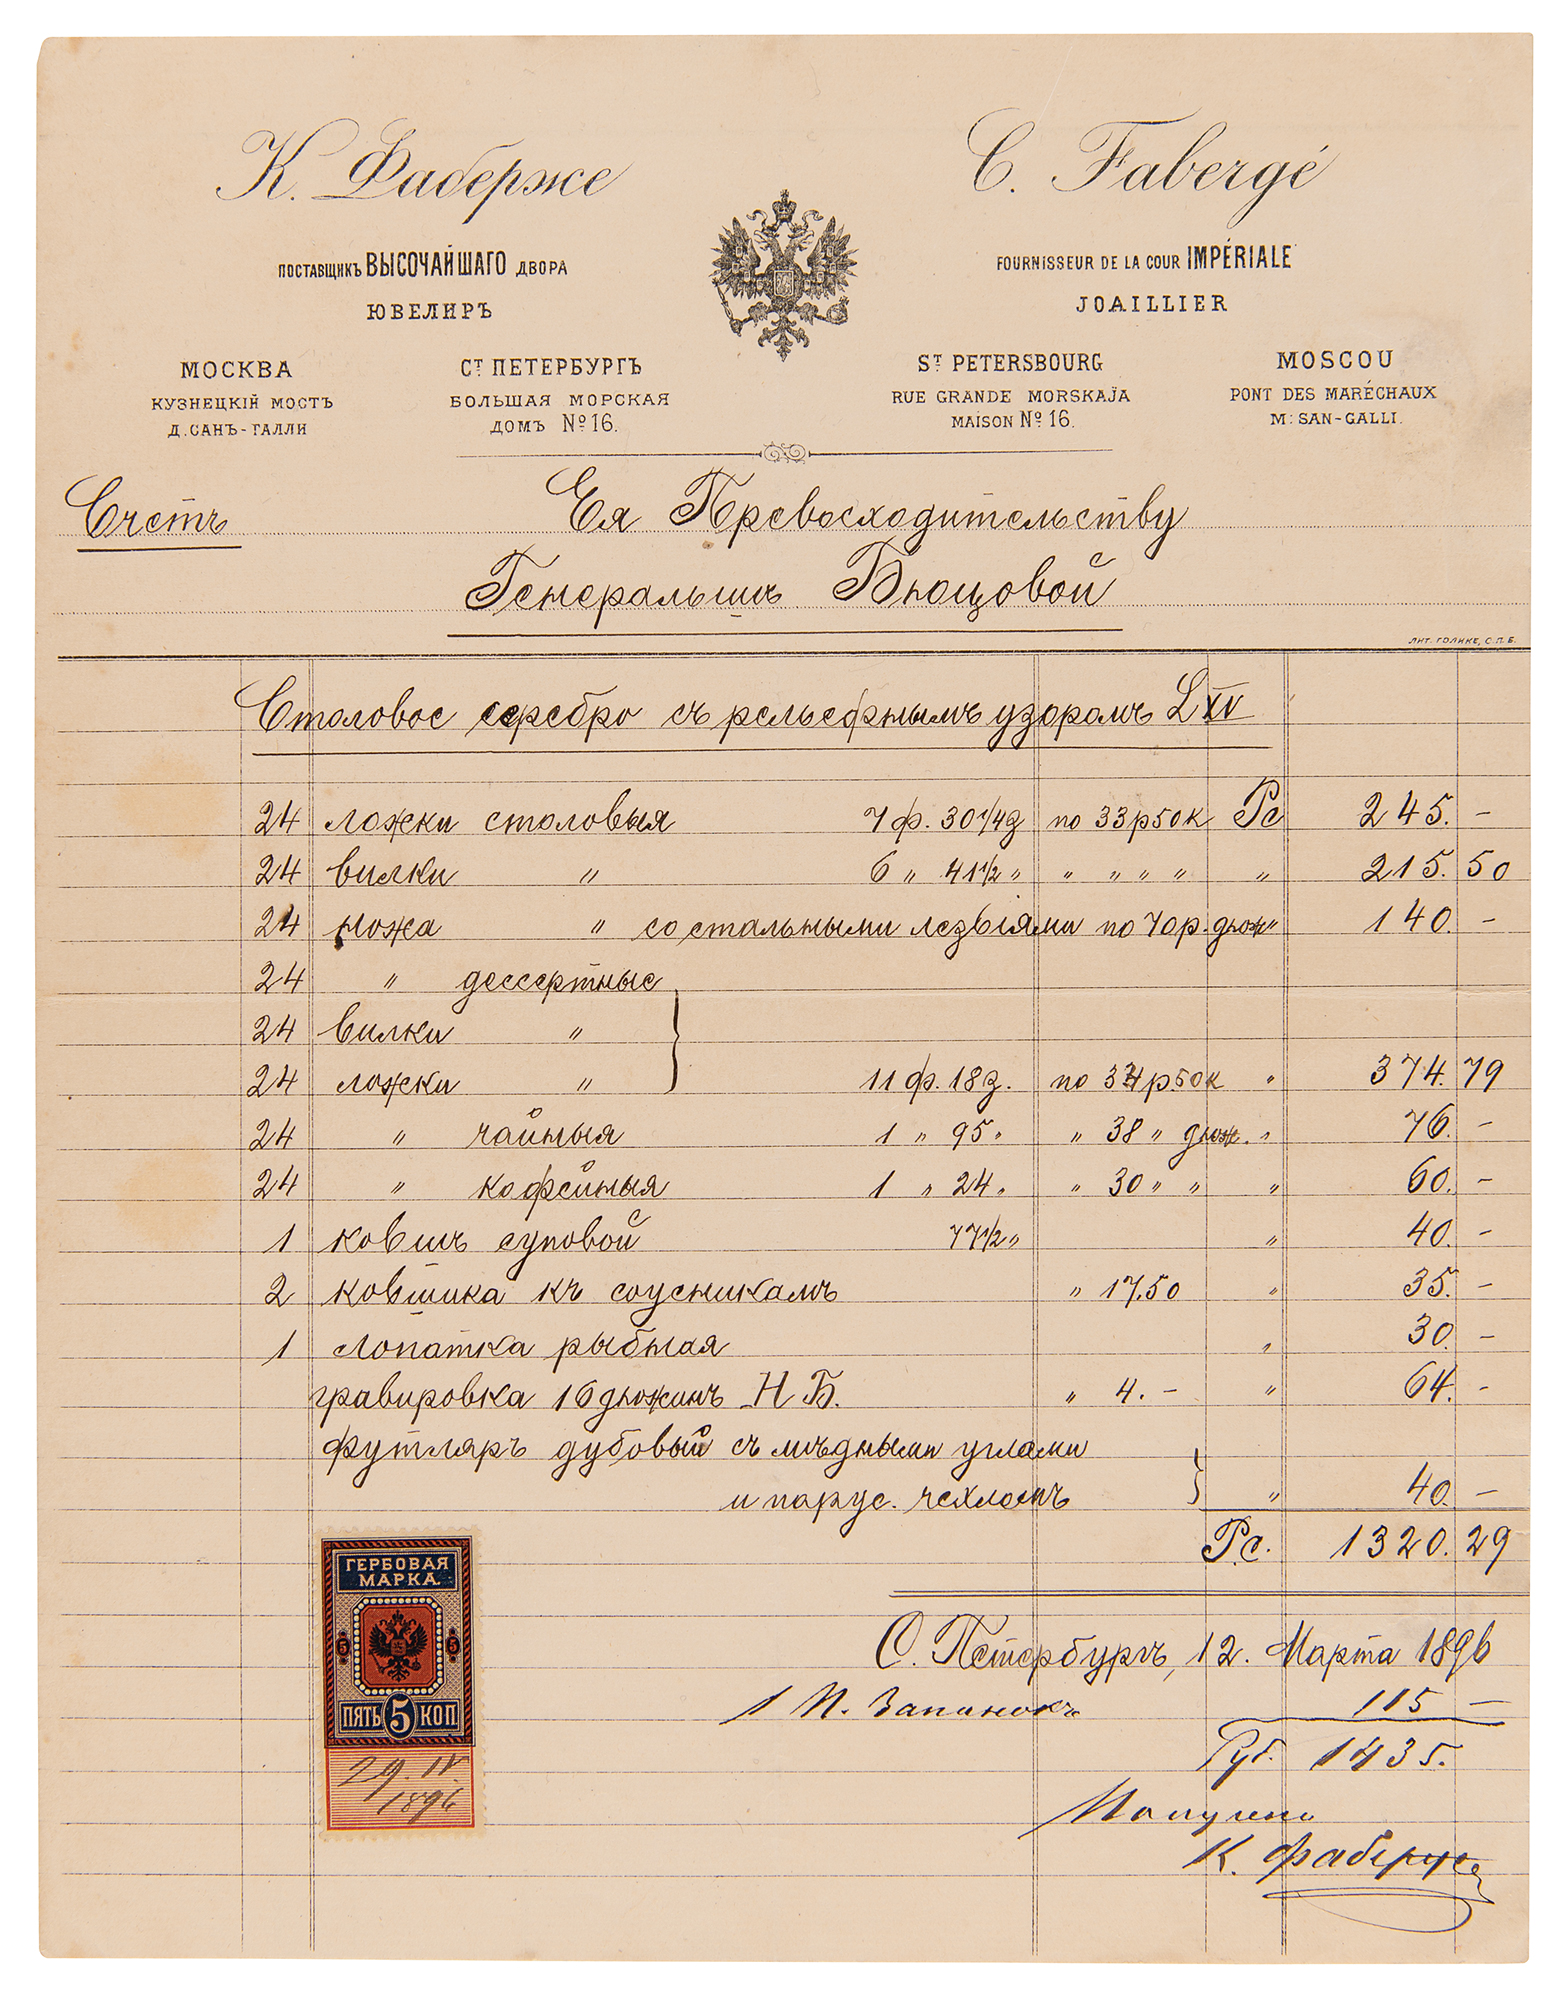 К. Фаберже
C. Fabergé
ПОСТАВЩИКЪ ВЫСОЧАЙШАГО ДВОРА
FOURNISSEUR DE LA COUR IMPÉRIALE
ЮВЕЛИРЪ
JOAILLIER
МОСКВА
СТ ПЕТЕРБУРГЪ
ST PETERSBOURG
MOSCOU
КУЗНЕЦКІЙ МОСТЪ
БОЛЬШАЯ МОРСКАЯ
RUE GRANDE MORSKAJA
PONT DES MARÉCHAUX
Д. САНЪ-ГАЛЛИ
ДОМЪ № 16.
MAISON № 16.
M: SAN-GALLI.
Счетъ
Ея Превосходительству
Генеральшѣ Бюцовой
ЛИТ. ГОЛИКЕ, С.П.Б.
Столовое серебро съ рельефнымъ узоромъ L XV
24 ложки столовыя 7 ф. 30 1/4 з по 33 р 50 к Рс 245. –
24 вилки " 6 " 41 1/2 " " " " " " 215. 50
24 ножа " со стальными лезвіями по 70 р. дюж " 140. –
24 " дессертные
24 вилки "
24 ложки " } 11 ф. 18 з. по 34 р 50 к " 374. 79
24 " чайныя 1 " 95 " " 38 " дюж. " 76. –
24 " кофейныя 1 " 24 " " 30 " " " 60. –
1 ковшъ суповой 77 1/2 " " 40. –
2 ковшика къ соусникамъ " 17.50 " 35. –
1 лопатка рыбная " 30. –
гравировка 16 дюжинъ Н Б. " 4. – " 64. –
футляръ дубовый съ мѣдными углами
и парус. чехломъ } " 40. –
Р.с. 1320. 29
С. Петербургъ, 12. Марта 1896
1 п. Запонокъ 115 –
Руб. 1435.
Получено
К. Фаберже
ГЕРБОВАЯ
МАРКА.
5 5
ПЯТЬ 5 КОП
29. IV
1896